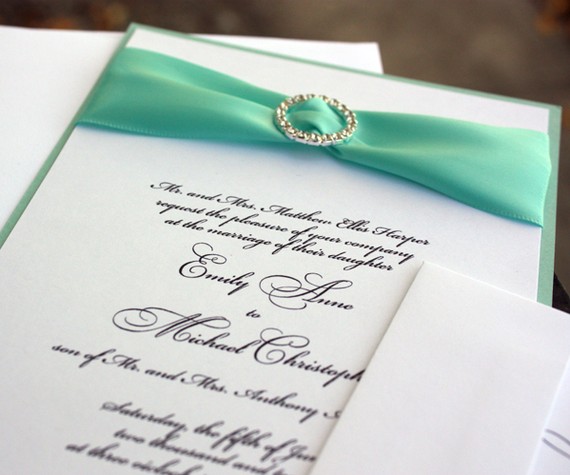 Mr. and Mrs. Matthew Ellis Harper
request the pleasure of your company
at the marriage of their daughter
Emily Anne
to
Michael Christoph
son of Mr. and Mrs. Anthony
Saturday, the fifth of
two thousand and
at three